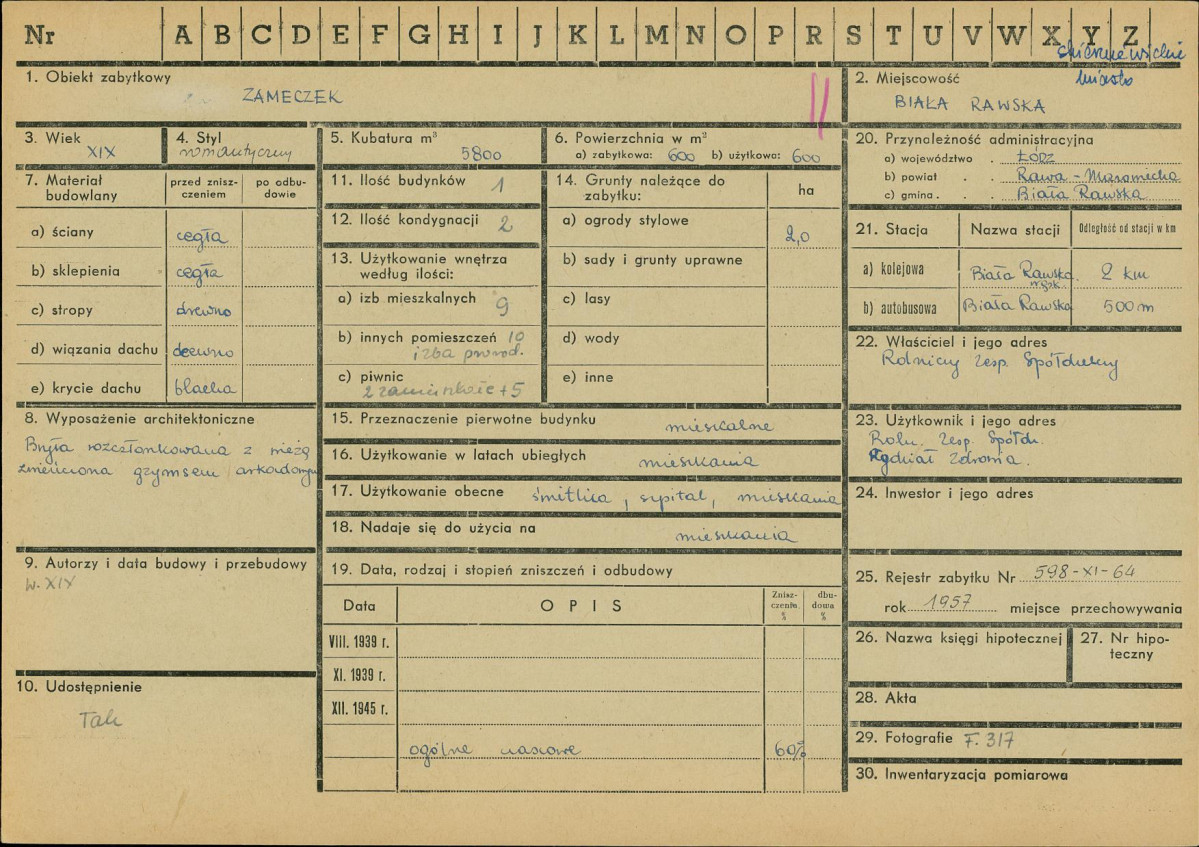 Nr A B C D E F G H I J K L M N O P R S T U V W X Y Z
miasto
1. Obiekt zabytkowy
ZAMECZEK
2. Miejscowość
BIAŁA RAWSKA
3. Wiek
XIX
4. Styl
romantyczny
5. Kubatura m³
5800
6. Powierzchnia w m²
a) zabytkowa: 600 b) użytkowa: 600
20. Przynależność administracyjna
a) województwo . Łódź
b) powiat . . Rawa - Mazowiecka
c) gmina . . . Biała Rawska
7. Materiał budowlany
przed zniszczeniem
po odbudowie
a) ściany cegła
b) sklepienia cegła
c) stropy drewno
d) wiązania dachu drewno
e) krycie dachu blacha
11. Ilość budynków 1
12. Ilość kondygnacji 2
13. Użytkowanie wnętrza
według ilości:
a) izb mieszkalnych 9
b) innych pomieszczeń 10
izba porod.
c) piwnic
2 zamieszkałe + 5
14. Grunty należące do
zabytku:
ha
a) ogrody stylowe 2,0
b) sady i grunty uprawne
c) lasy
d) wody
e) inne
21. Stacja Nazwa stacji Odległość od stacji w km
a) kolejowa Biała Rawska wąsk. 2 km
b) autobusowa Biała Rawska 500 m
22. Właściciel i jego adres
Rolniczy Zesp. Spółdzielczy
8. Wyposażenie architektoniczne
Bryła rozczłonkowana z wieżą
zwieńczona gzymsem arkadowym
15. Przeznaczenie pierwotne budynku mieszkalne
16. Użytkowanie w latach ubiegłych mieszkania
17. Użytkowanie obecne świetlica, szpital, mieszkania
18. Nadaje się do użycia na mieszkania
23. Użytkownik i jego adres
Roln. Zesp. Spółdz.
Wydział Zdrowia.
24. Inwestor i jego adres
9. Autorzy i data budowy i przebudowy
w. XIX
19. Data, rodzaj i stopień zniszczeń i odbudowy
Data OPIS Zniszczenia % dbudowa %
VIII. 1939 r.
XI. 1939 r.
XII. 1945 r.
ogólne 60%
25. Rejestr zabytku Nr 598-XI-64
rok 1957 miejsce przechowywania
26. Nazwa księgi hipotecznej
27. Nr hipoteczny
10. Udostępnienie
Tak
28. Akta
29. Fotografie F. 317
30. Inwentaryzacja pomiarowa